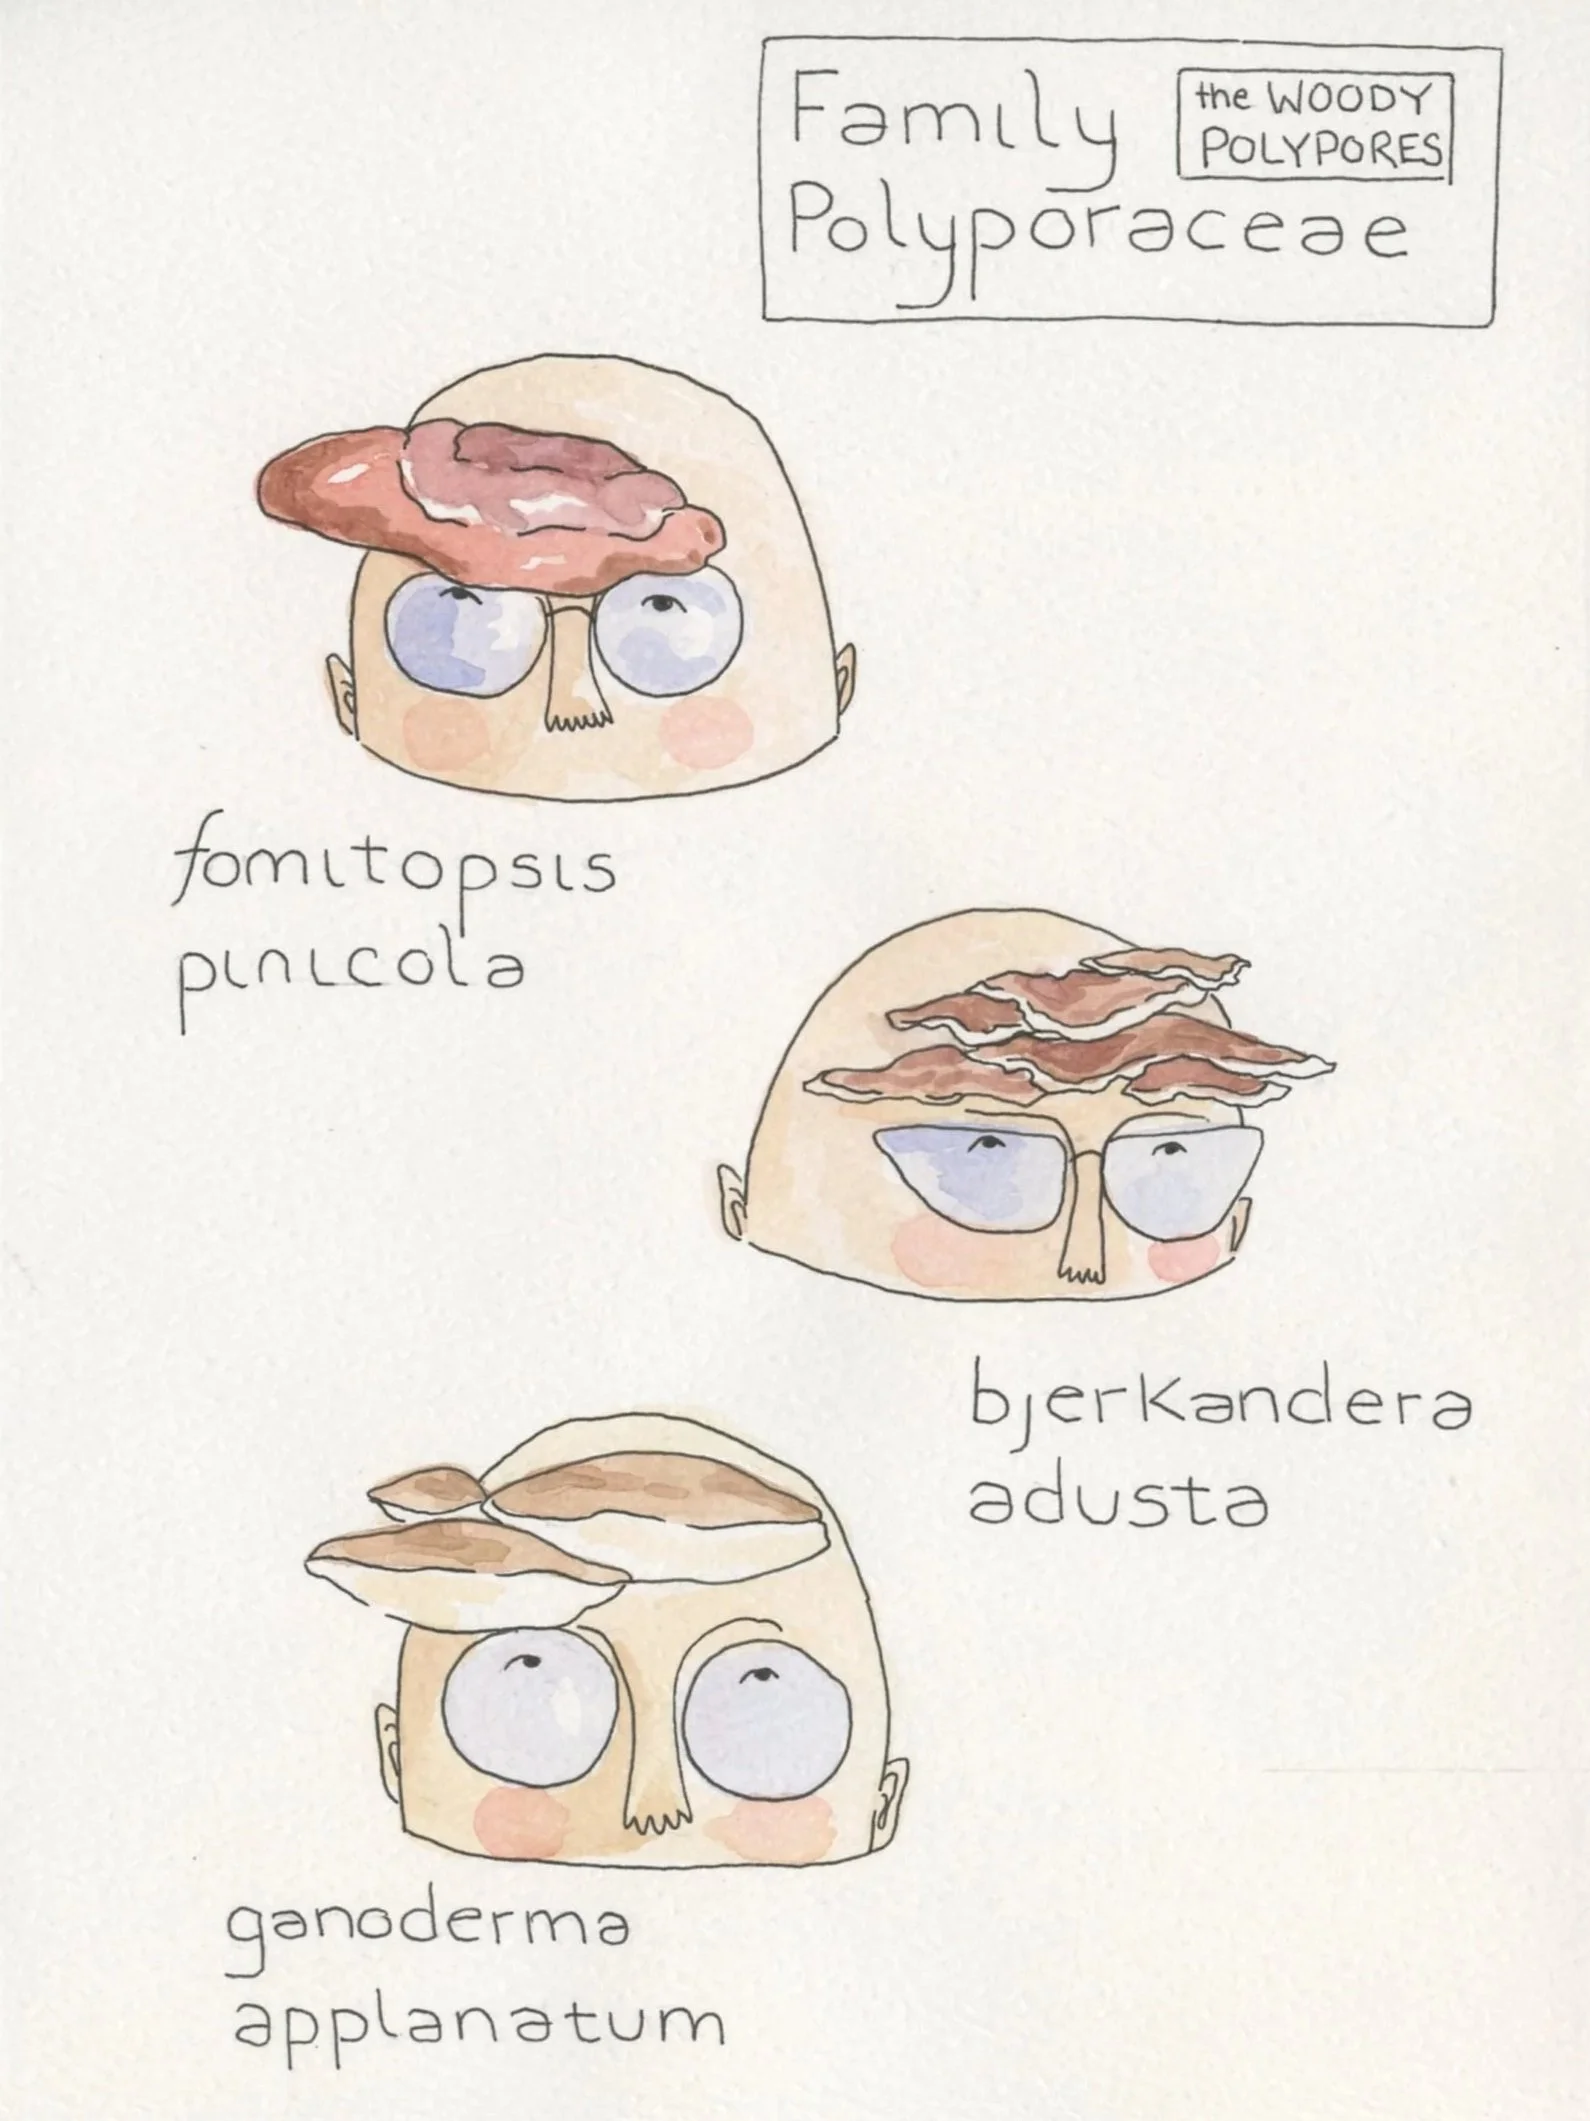 Family
the WOODY
POLYPORES
Polyporaceae
fomitopsis
pinicola
bjerkandera
adusta
ganoderma
applanatum